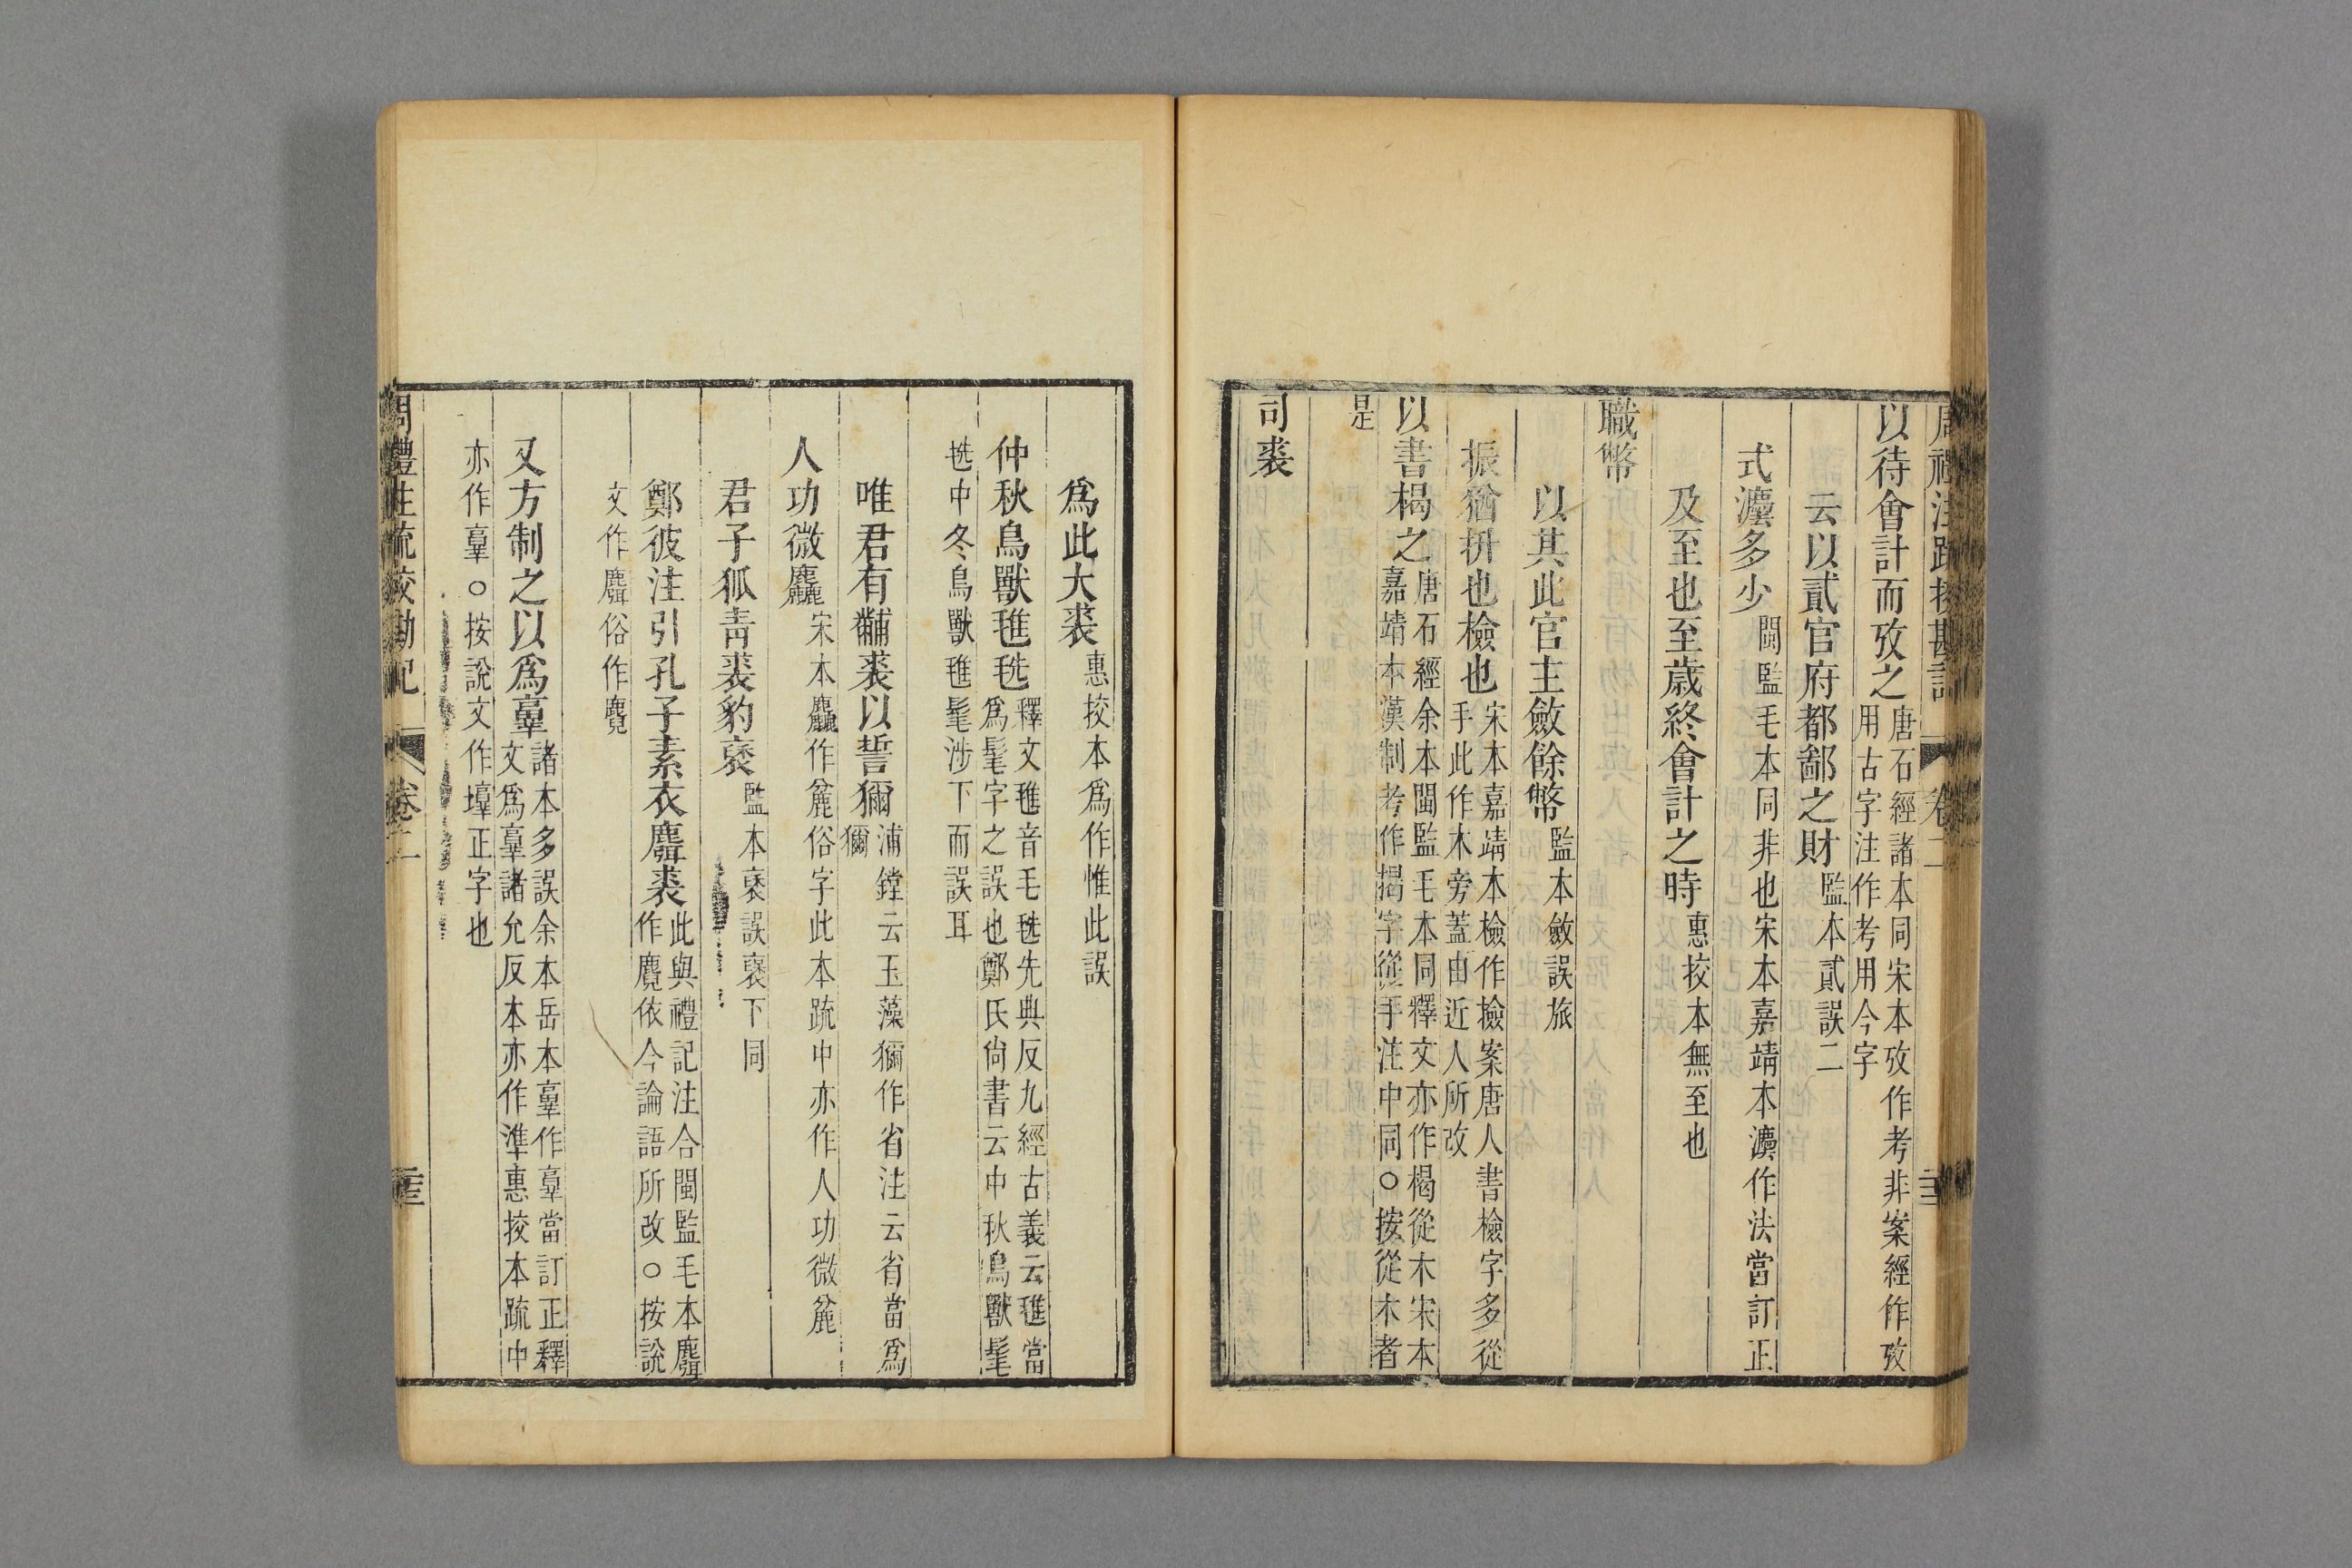 以待會計而攷之唐石經諸本同宋本攷作考非案經作攷用古字注作考用今字
云以貳官府都鄙之財監本貳誤二
式灋多少閩監毛本同非也宋本嘉靖本灋作法當訂正
及至也至歲終會計之時惠挍本無至也
職幣
以其此官主斂餘幣監本斂誤旅
振猶拼也檢也宋本嘉靖本檢作撿案唐人書檢字多從手此作木旁蓋由近人所改
以書楬之唐石經余本閩監毛本同釋文亦作楬從木宋本嘉靖本漢制考作揭字從手注中同○按從木者
是
司裘
爲此大裘惠挍本爲作惟此誤
仲秋鳥獸毨毨釋文毨音毛毨先典反九經古義云毨當爲髦字之誤也鄭氏尙書云中秋鳥獸髦
毨中冬鳥獸氄髦涉下而誤耳
唯君有黼裘以誓獮浦鏜云玉藻獮作省注云省當爲獮
人功微麤宋本麤作麄俗字此本疏中亦作人功微麄
君子狐靑裘豹褎監本褎誤褒下同
鄭彼注引孔子素衣麛裘此與禮記注合閩監毛本麛作麑依今論語所改○按說
文作麛俗作麑
又方制之以爲𦎫諸本多誤余本岳本𦎫作𦎫當訂正釋文爲𦎫諸允反本亦作準惠挍本疏中
亦作𦎫○按說文作壿正字也
周禮注疏挍勘記 卷二